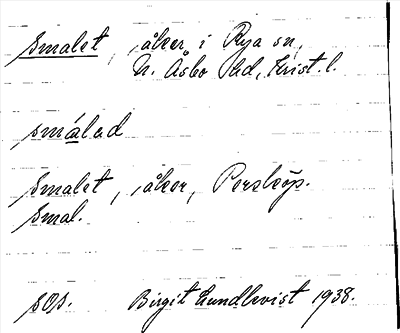 Smalet, åker, i Rya sn,
N. Åsbo hd, Krist. l.
småləd
Smalet, åker, Perstorp.
Smal.
sop. Birgit Lundkvist 1938.